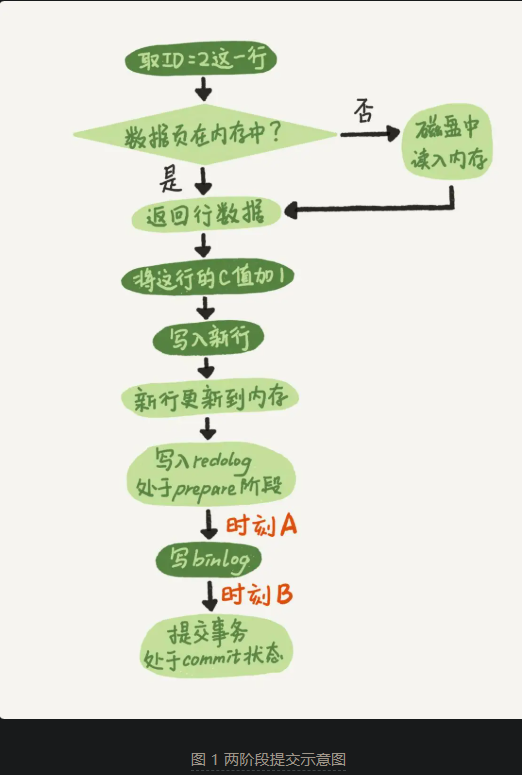 取ID=2这一行
否
数据页在内存中?
磁盘中
读入内存
是
返回行数据
将这行的C值加1
写入新行
新行更新到内存
写入redolog
处于prepare阶段
时刻A
写binlog
时刻B
提交事务
处于commit状态
图 1 两阶段提交示意图